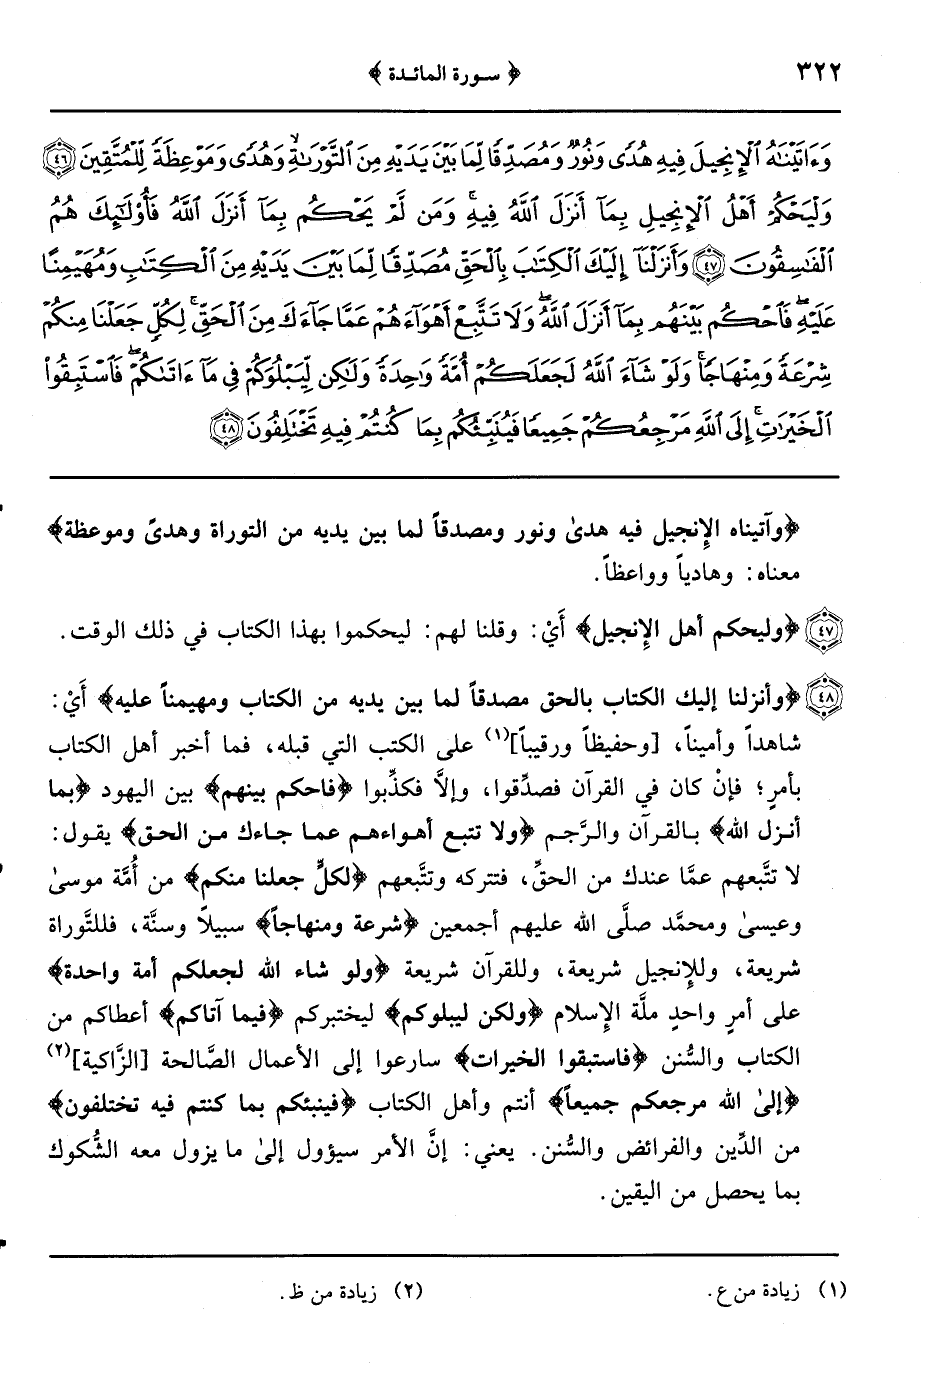 ٣٢٢ ﴿ سورة المائدة ﴾
وَءَاتَيْنَٰهُ ٱلْإِنجِيلَ فِيهِ هُدًى وَنُورٌ وَمُصَدِّقًا لِّمَا بَيْنَ يَدَيْهِ مِنَ ٱلتَّوْرَىٰةِ وَهُدًى وَمَوْعِظَةً لِّلْمُتَّقِينَ ٤٦
وَلْيَحْكُمْ أَهْلُ ٱلْإِنجِيلِ بِمَآ أَنزَلَ ٱللَّهُ فِيهِ ۚ وَمَن لَّمْ يَحْكُم بِمَآ أَنزَلَ ٱللَّهُ فَأُو۟لَٰٓئِكَ هُمُ
ٱلْفَٰسِقُونَ ٤٧ وَأَنزَلْنَآ إِلَيْكَ ٱلْكِتَٰبَ بِٱلْحَقِّ مُصَدِّقًا لِّمَا بَيْنَ يَدَيْهِ مِنَ ٱلْكِتَٰبِ وَمُهَيْمِنًا
عَلَيْهِ ۖ فَٱحْكُم بَيْنَهُم بِمَآ أَنزَلَ ٱللَّهُ ۖ وَلَا تَتَّبِعْ أَهْوَآءَهُمْ عَمَّا جَآءَكَ مِنَ ٱلْحَقِّ ۚ لِكُلٍّ جَعَلْنَا مِنكُمْ
شِرْعَةً وَمِنْهَاجًا ۚ وَلَوْ شَآءَ ٱللَّهُ لَجَعَلَكُمْ أُمَّةً وَٰحِدَةً وَلَٰكِن لِّيَبْلُوَكُمْ فِى مَآ ءَاتَىٰكُمْ ۖ فَٱسْتَبِقُوا۟
ٱلْخَيْرَٰتِ ۚ إِلَى ٱللَّهِ مَرْجِعُكُمْ جَمِيعًا فَيُنَبِّئُكُم بِمَا كُنتُمْ فِيهِ تَخْتَلِفُونَ ٤٨
﴿وآتيناه الإِنجيل فيه هدىٰ ونور ومصدقاً لما بين يديه من التوراة وهدىً وموعظة﴾
معناه: وهادياً وواعظاً.
٤٧ ﴿وليحكم أهل الإِنجيل﴾ أَيْ: وقلنا لهم: ليحكموا بهذا الكتاب في ذلك الوقت.
٤٨ ﴿وأنزلنا إليك الكتاب بالحق مصدقاً لما بين يديه من الكتاب ومهيمناً عليه﴾ أَيْ:
شاهداً وأميناً، [وحفيظاً ورقيباً](١) على الكتب التي قبله، فما أخبر أهل الكتاب
بأمرٍ؛ فإنْ كان في القرآن فصدِّقوا، وإلاَّ فكذِّبوا ﴿فاحكم بينهم﴾ بين اليهود ﴿بما
أنزل الله﴾ بالقرآن والرَّجم ﴿ولا تتبع أهواءهم عما جاءك من الحق﴾ يقول:
لا تتَّبعهم عمَّا عندك من الحقِّ، فتتركه وتتَّبعهم ﴿لكلٍّ جعلنا منكم﴾ من أُمَّة موسىٰ
وعيسىٰ ومحمَّد صلَّى الله عليهم أجمعين ﴿شرعة ومنهاجاً﴾ سبيلاً وسنَّة، فللتَّوراة
شريعة، وللإِنجيل شريعة، وللقرآن شريعة ﴿ولو شاء الله لجعلكم أمة واحدة﴾
على أمرٍ واحدٍ ملَّة الإِسلام ﴿ولكن ليبلوكم﴾ ليختبركم ﴿فيما آتاكم﴾ أعطاكم من
الكتاب والسُّنن ﴿فاستبقوا الخيرات﴾ سارعوا إلى الأعمال الصَّالحة [الزَّاكية](٢)
﴿إلىٰ الله مرجعكم جميعاً﴾ أنتم وأهل الكتاب ﴿فينبئكم بما كنتم فيه تختلفون﴾
من الدِّين والفرائض والسُّنن. يعني: إنَّ الأمر سيؤول إلىٰ ما يزول معه الشُّكوك
بما يحصل من اليقين.
(١) زيادة من ع. (٢) زيادة من ظ.